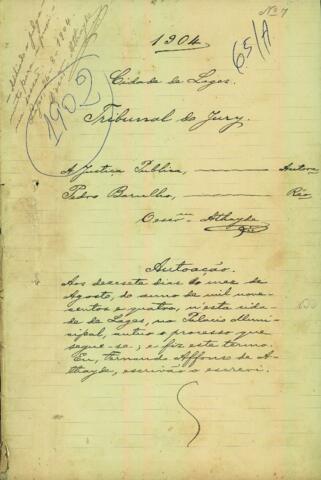 Nº 7
1904.
65/A
1902
Cidade de Lages.
Tribunal do Jury.
A Justiça Publica, Autora
Pedro Barulho, Réo
Escrᵐ Athayde
Autoação.
Aos dezesete dias do mez de
Agosto, do anno de mil nove-
centos e quatro, n'esta cida-
de de Lages, no Palacio Muni-
cipal, autúo o processo que
segue-se; e fiz este termo.
Eu, Fernando Affonso de A-
thayde, escrivão o escrevi.